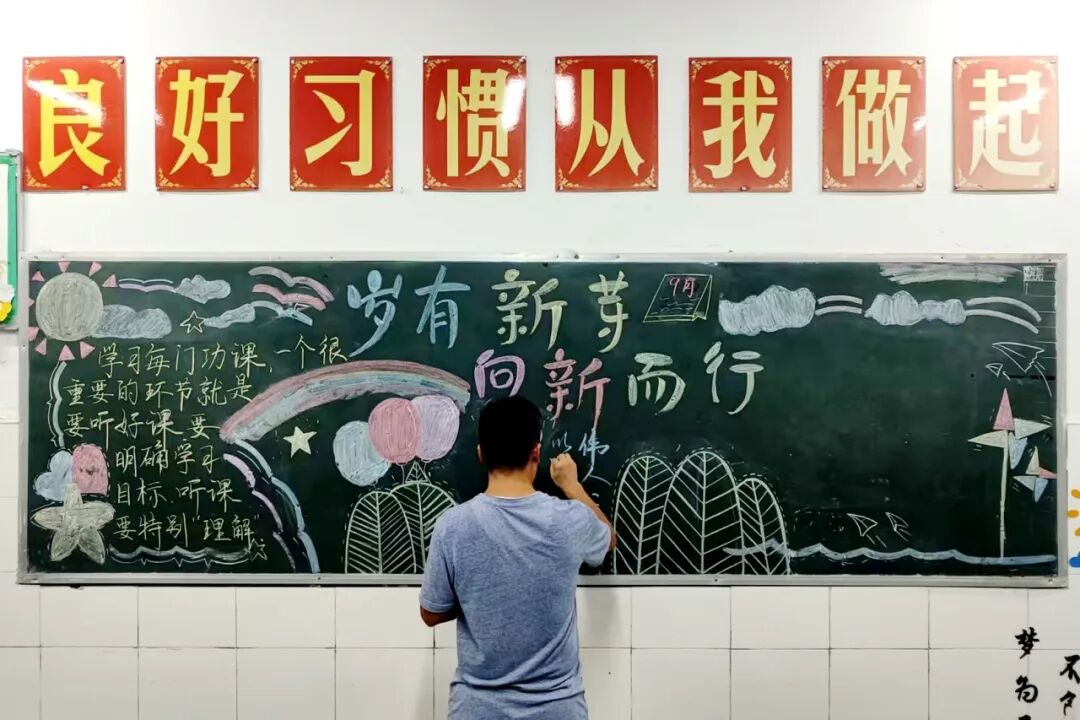 良好习惯从我做起
岁有新芽
9月
向新而行
学习每门功课,一个很
重要的环节就是
要听好课.要
明确学习
目标.听课
要特别"理解"
以伟
梦为
不夕